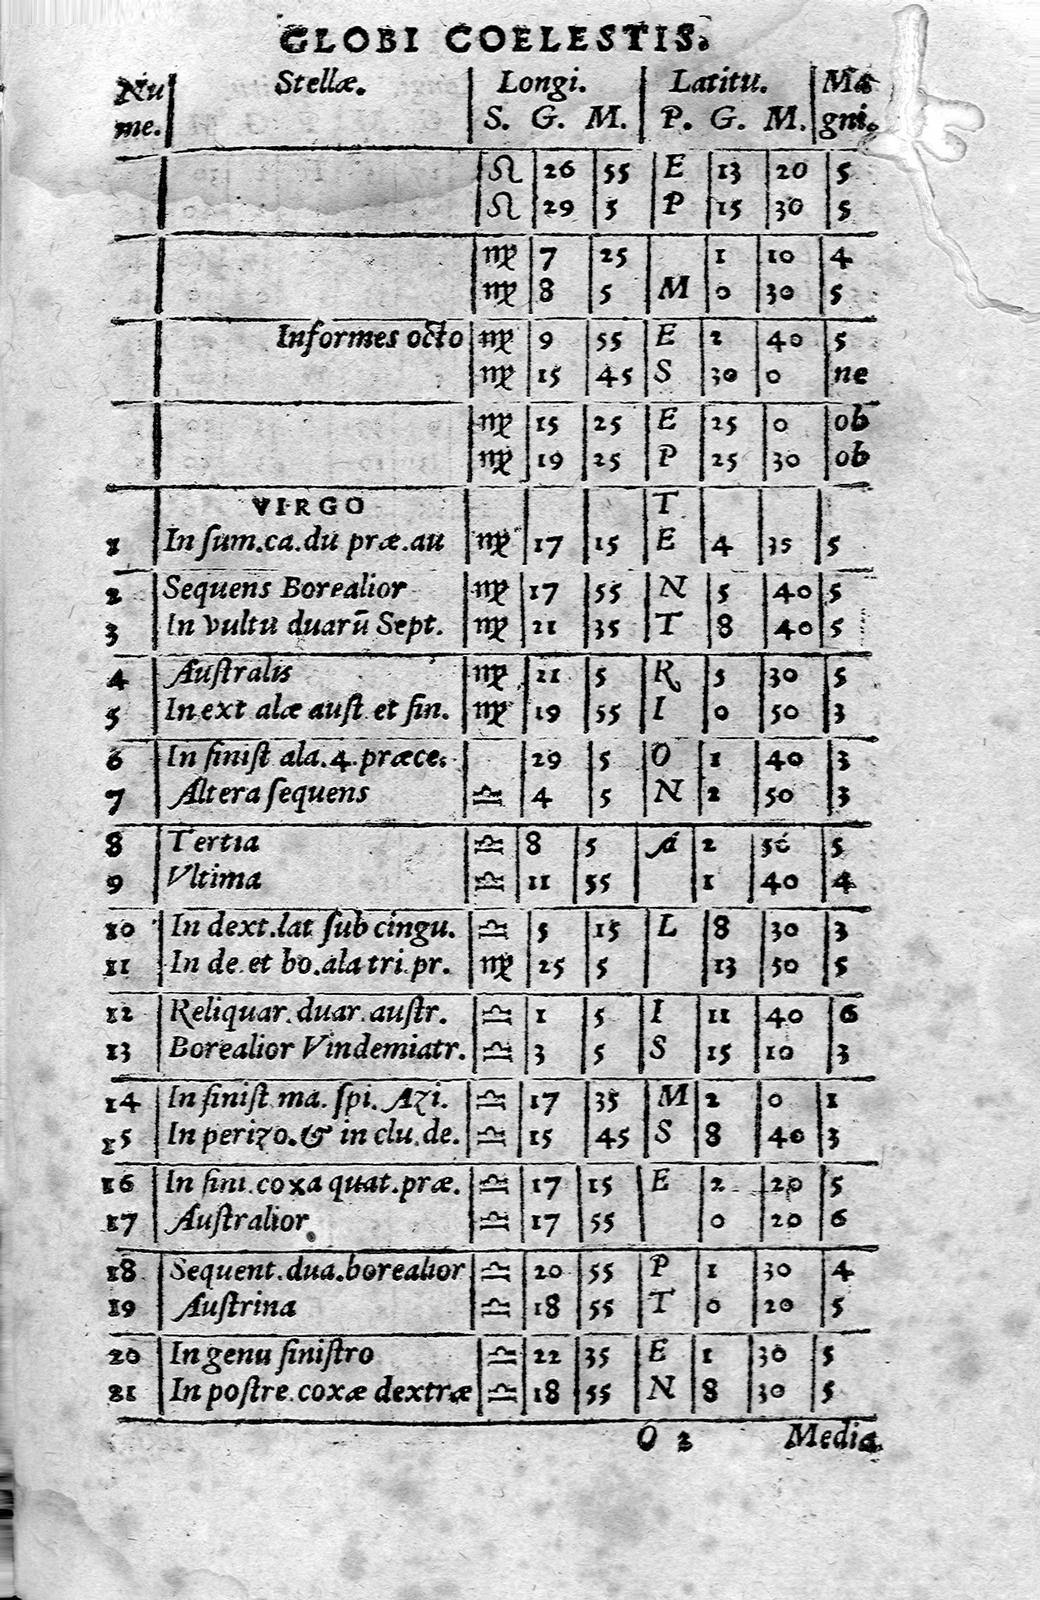 GLOBI COELESTIS.
Nu Stellæ. Longi. Latitu. Ma
me. S. G. M. P. G. M. gni.
♌ 26 55 E 13 20 5
♌ 29 5 P 15 30 5
♍ 7 25 1 10 4
♍ 8 5 M 0 30 5
Informes octo ♍ 9 55 E 2 40 5
♍ 15 45 S 30 0 ne
♍ 15 25 E 25 0 ob
♍ 19 25 P 25 30 ob
VIRGO T
1 In ſum.ca.du præ.au ♍ 17 15 E 4 35 5
2 Sequens Borealior ♍ 17 55 N 5 40 5
3 In vultu duarū Sept. ♍ 21 35 T 8 40 5
4 Auſtralis ♍ 21 5 R 5 30 5
5 In ext alæ auſt et ſin. ♍ 19 55 I 0 50 3
6 In ſiniſt ala.4.præce. 29 5 O 1 40 3
7 Altera ſequens ♎ 4 5 N 2 50 3
8 Tertia ♎ 8 5 A 2 50 5
9 Vltima ♎ 11 55 1 40 4
10 In dext.lat ſub cingu. ♎ 5 15 L 8 30 3
11 In de et bo.ala tri.pr. ♍ 25 5 13 50 5
12 Reliquar.duar.auſtr. ♎ 1 5 I 11 40 6
13 Borealior Vindemiatr. ♎ 3 5 S 15 10 3
14 In ſiniſt ma. ſpi. Azi. ♎ 17 35 M 2 0 1
15 In perizo.& in clu.de. ♎ 15 45 S 8 40 3
16 In ſini.coxa quat.præ. ♎ 17 15 E 2 20 5
17 Auſtralior ♎ 17 55 0 20 6
18 Sequent.dua.borealior ♎ 20 55 P 1 30 4
19 Auſtrina ♎ 18 55 T 0 20 5
20 In genu ſiniſtro ♎ 22 35 E 1 30 5
21 In poſtre.coxæ dextræ ♎ 18 55 N 8 30 5
O 2 Media